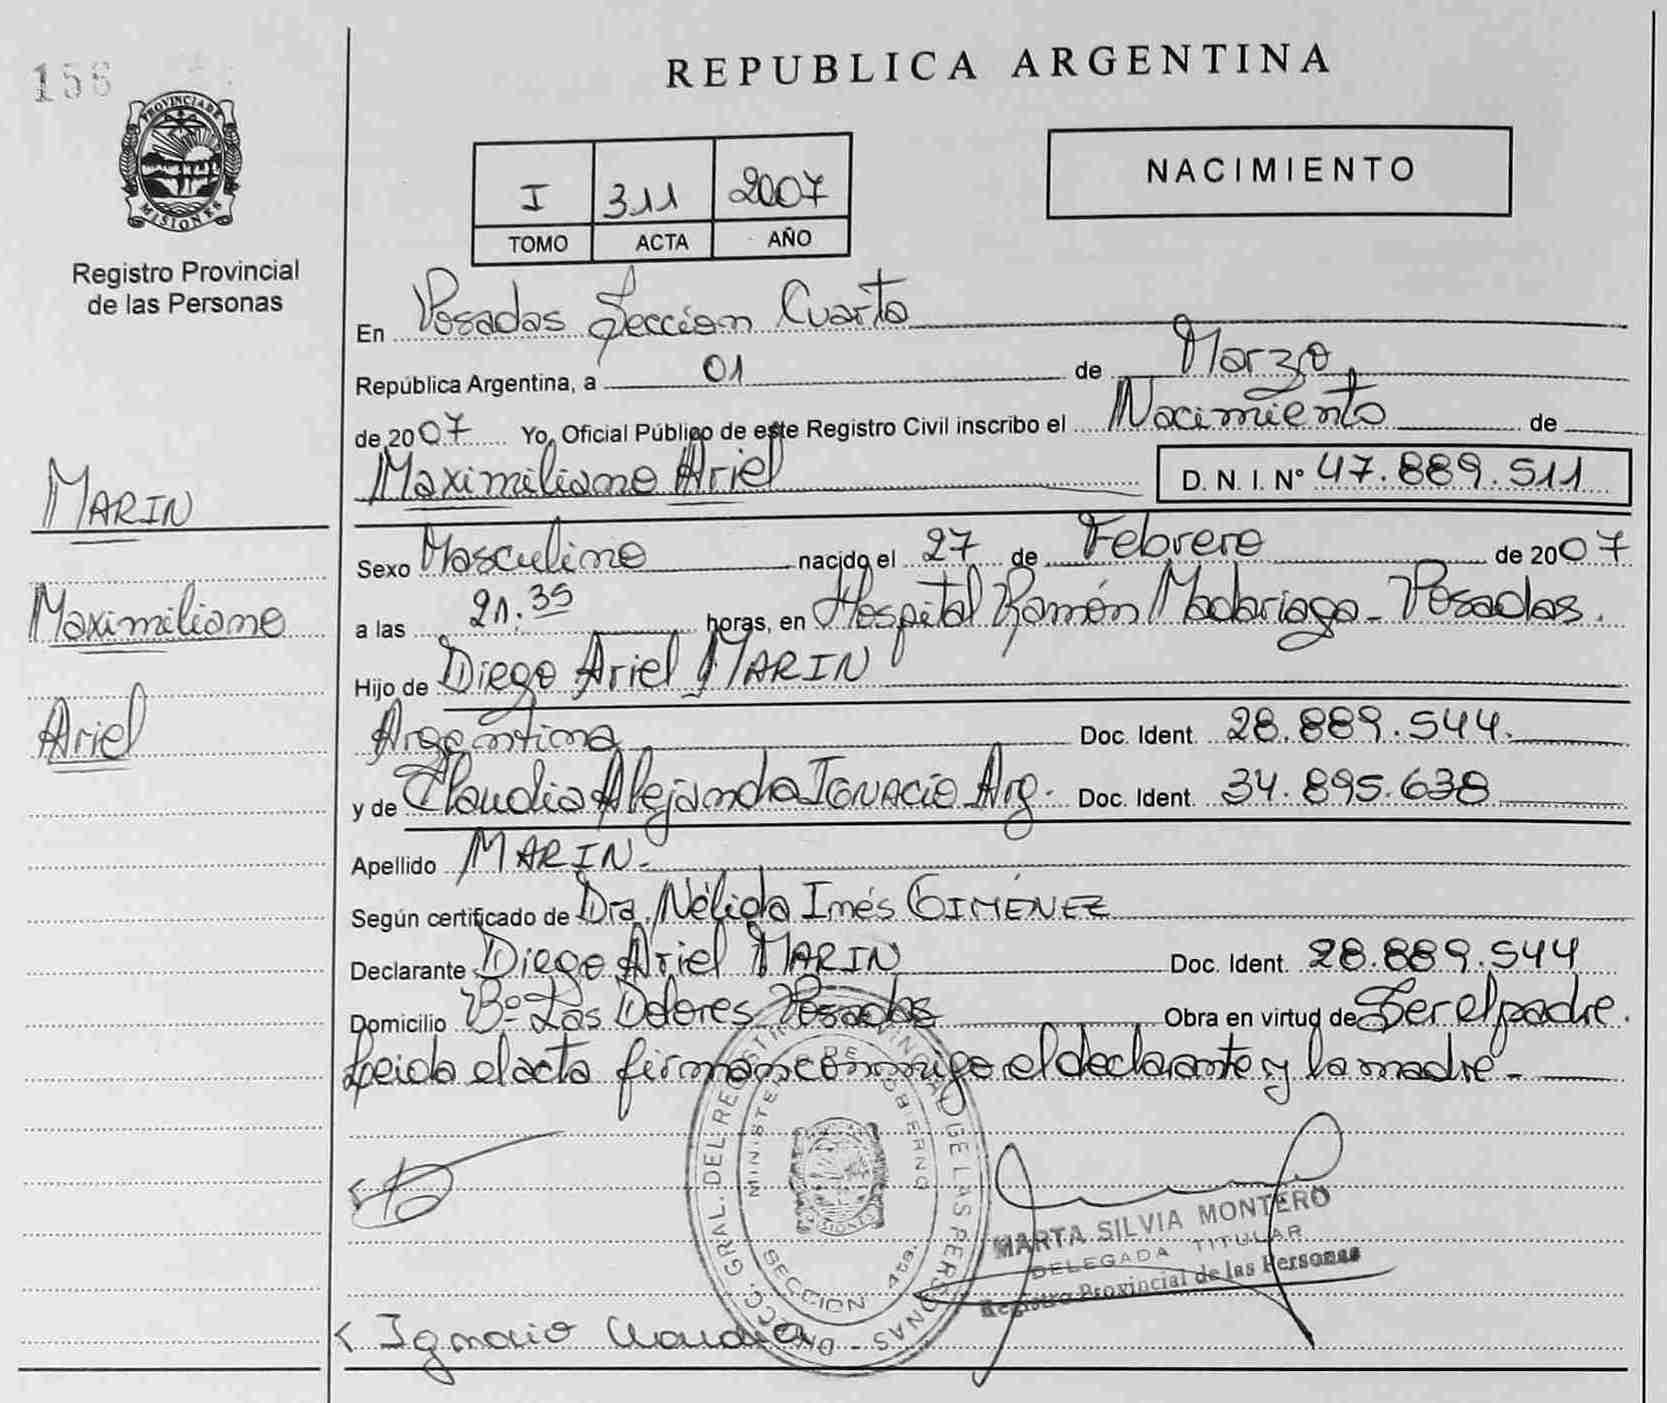 156
PROVINCIA DE
MISIONES
Registro Provincial
de las Personas
MARIN
Maximiliano
Ariel
REPUBLICA ARGENTINA
I 311 2007
TOMO ACTA AÑO
NACIMIENTO
En Posadas Sección Cuarta
República Argentina, a 01 de Marzo
de 2007 Yo, Oficial Público de este Registro Civil inscribo el Nacimiento de
Maximiliano Ariel D. N. I. Nº 47.889.511
Sexo Masculino nacido el 27 de Febrero de 2007
a las 21.35 horas, en Hospital Ramón Madariaga - Posadas.
Hijo de Diego Ariel MARIN
Argentina Doc. Ident. 28.889.544.
y de Claudia Alejandra IGNACIO Arg. Doc. Ident. 34.895.638
Apellido MARIN.-
Según certificado de Dra. Nélida Inés GIMÉNEZ
Declarante Diego Ariel MARIN Doc. Ident. 28.889.544
Domicilio Bº Las Dolores Posadas Obra en virtud de Ser el padre.
Leida el acta firman conmigo el declarante y la madre -
DIRECC. GRAL. DEL REGISTRO PROVINCIAL DE LAS PERSONAS -
MINISTERIO DE GOBIERNO
MISIONES
SECCION 4ta.
MARTA SILVIA MONTERO
DELEGADA TITULAR
Registro Provincial de las Personas
Ignacio Claudia